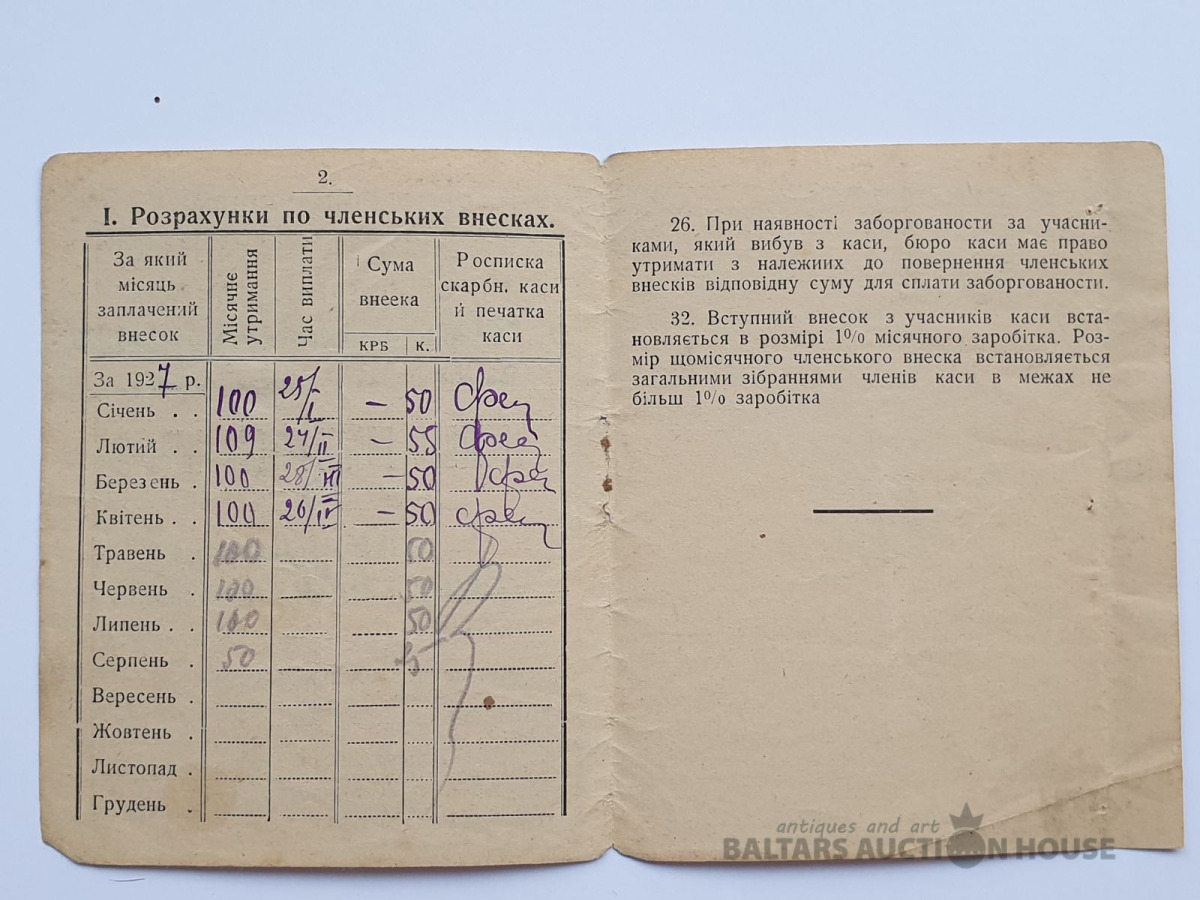 2.
I. Розрахунки по членських внесках.
За який місяць заплачений внесок
Місячне утримання
Час виплати
Сума внеека
КРБ К.
Росписка скарбн. каси й печатка каси
За 1927 р.
Січень . . 100 25/I – 50
Лютий . . 109 24/II – 55
Березень . 100 28/III – 50
Квітень . . 100 26/IV – 50
Травень . 100 50
Червень . 100 50
Липень . . 100 50
Серпень . 50 25
Вересень .
Жовтень .
Листопад .
Грудень .
26. При наявності заборгованости за учасни-
ками, який вибув з каси, бюро каси має право
утримати з належиих до повернення членських
внесків відповідну суму для сплати заборгованости.
32. Вступний внесок з учасників каси вста-
новляється в розмірі 1% місячного заробітка. Роз-
мір щомісячного членського внеска встановляється
загальними зібраннями членів каси в межах не
більш 1% заробітка
antiques and art
BALTARS AUCTION HOUSE